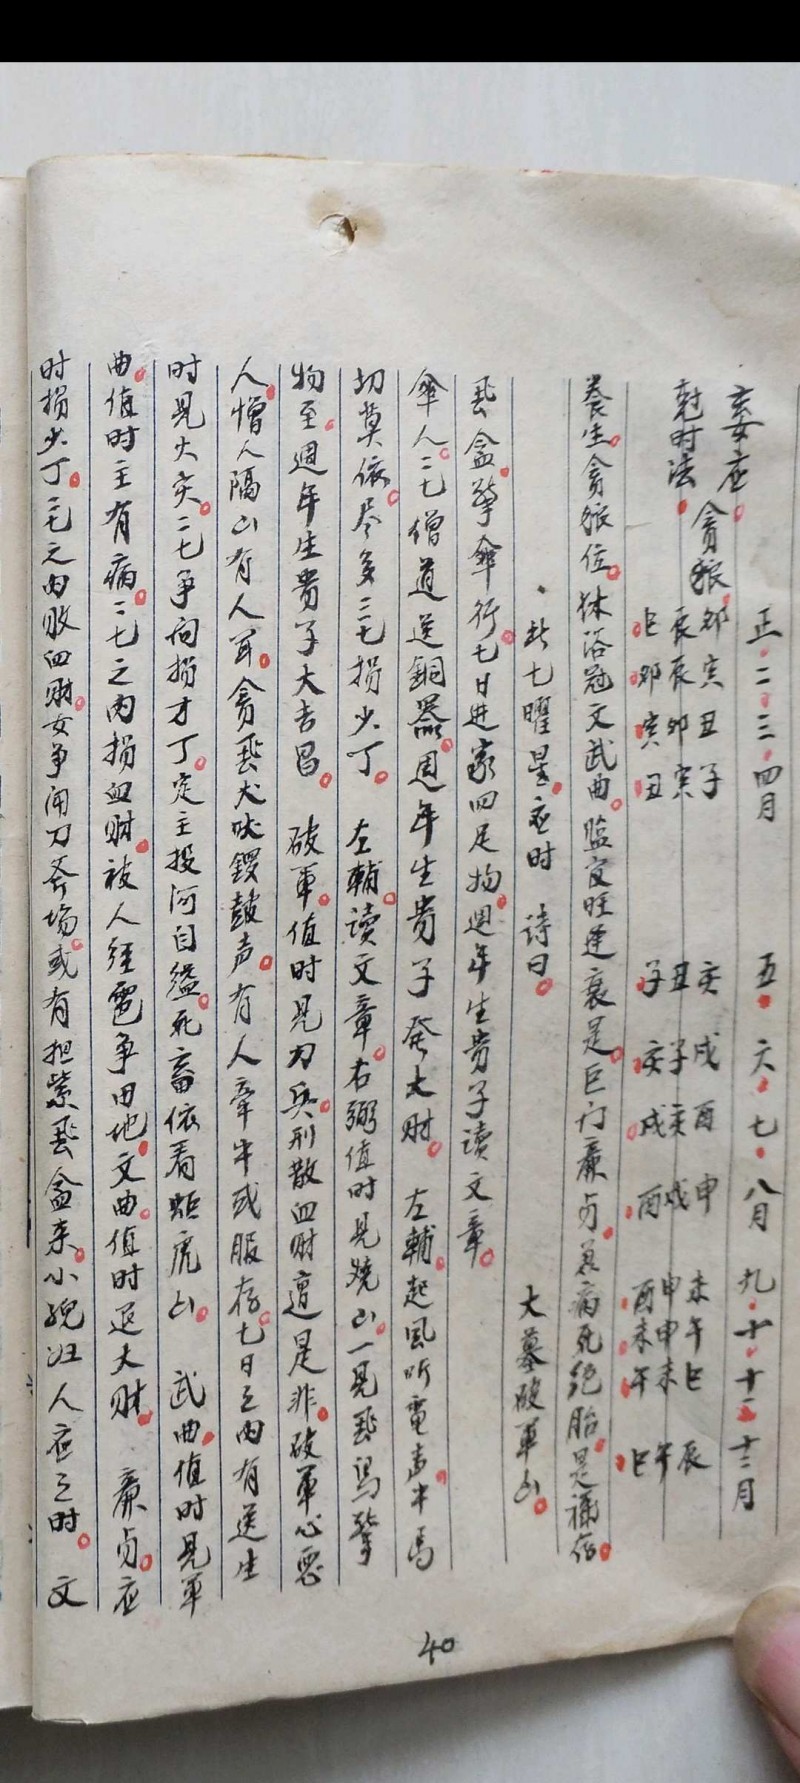 正。二。三。四月 五。六。七。八月 九。十。十一。十二月
妻应。貪狼。卯寅丑子 亥戌酉申 未午巳辰
尅时法。辰辰卯寅 丑子亥戌 申申未午
巳卯寅丑 子亥戌酉 酉未午巳
養生。貪狼位。沐浴冠文武曲。临官旺逢衰是。巨门廉贞。病死绝胎。是禄存。
大墓破軍山。
此七曜星。应时 诗曰。
盒。擎傘行。七日进家四足物。週年生贵子读文章。
傘人。二七僧道送銅器。週年生贵子發大财。 左輔。起風听雷声。牛馬
切莫依。尽多三七损少丁。 左輔。读文章。右弼值时見燒山。一見 擎
物至。週年生贵子大吉昌。 破軍。值时見刀兵。刑散血财遭是非。破軍心恶
人。憎人隔山有人 貪 犬吠鑼鼓声。有人牽牛或服存。七日之内有送生
时見火灾。二七争向损才丁。定主投河自缢。死畜依看蛇虎山。 武曲。值时見軍
曲。值时主有病。二七之内损血财。被人 争田地。文曲。值时退大财。 廉贞。应
时损少丁。三七之内败血财。女争闹刀斧场。或有担柴 盒来。小 人应之时。 文
40